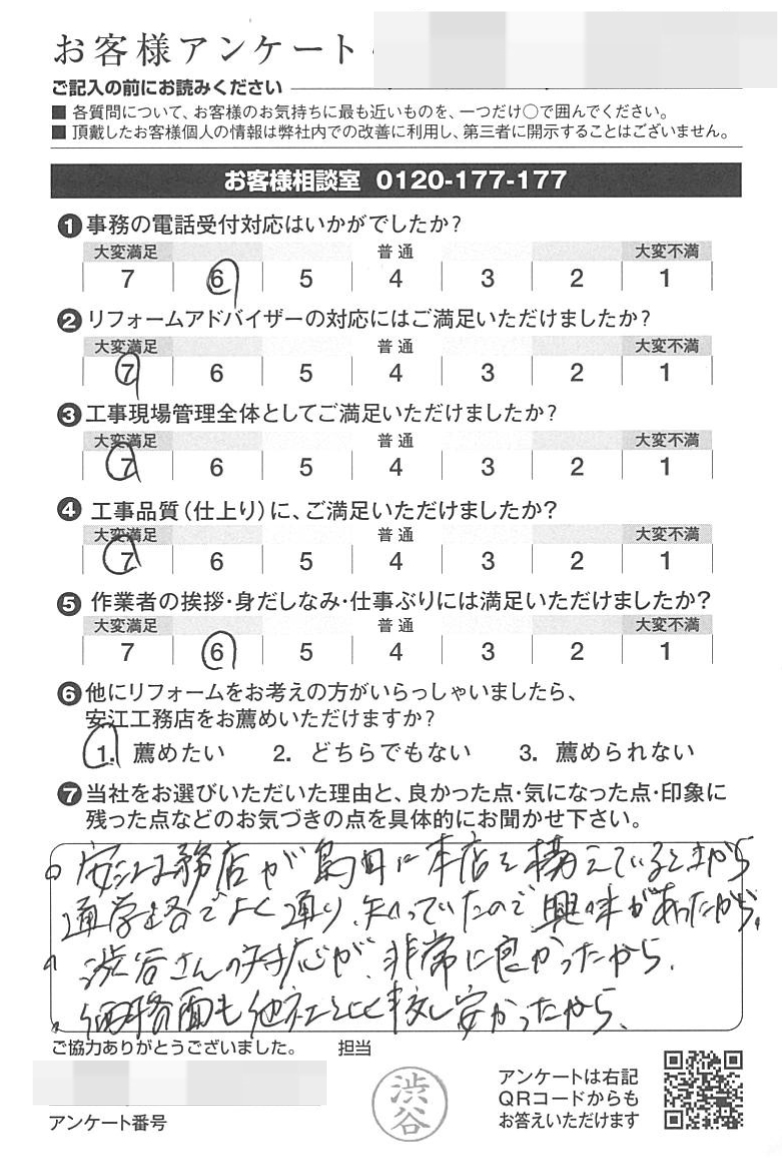 お客様アンケート
ご記入の前にお読みください
■ 各質問について、お客様のお気持ちに最も近いものを、一つだけ○で囲んでください。
■ 頂戴したお客様個人の情報は弊社内での改善に利用し、第三者に開示することはございません。
お客様相談室 0120-177-177
❶事務の電話受付対応はいかがでしたか?
大変満足 普通 大変不満
7 6 5 4 3 2 1
❷リフォームアドバイザーの対応にはご満足いただけましたか?
大変満足 普通 大変不満
7 6 5 4 3 2 1
❸工事現場管理全体としてご満足いただけましたか?
大変満足 普通 大変不満
7 6 5 4 3 2 1
❹工事品質(仕上り)に、ご満足いただけましたか?
大変満足 普通 大変不満
7 6 5 4 3 2 1
❺作業者の挨拶・身だしなみ・仕事ぶりには満足いただけましたか?
大変満足 普通 大変不満
7 6 5 4 3 2 1
❻他にリフォームをお考えの方がいらっしゃいましたら、
安江工務店をお薦めいただけますか?
1. 薦めたい 2. どちらでもない 3. 薦められない
❼当社をお選びいただいた理由と、良かった点・気になった点・印象に
残った点などのお気づきの点を具体的にお聞かせ下さい。
安江工務店が 本店を構えている から
通学路でよく通り、知っていたので興味があったから。
渋谷さんの対応が、非常に良かったから。
価格面も他社と比較し安かったから。
ご協力ありがとうございました。 担当
渋谷
アンケートは右記
QRコードからも
お答えいただけます
アンケート番号